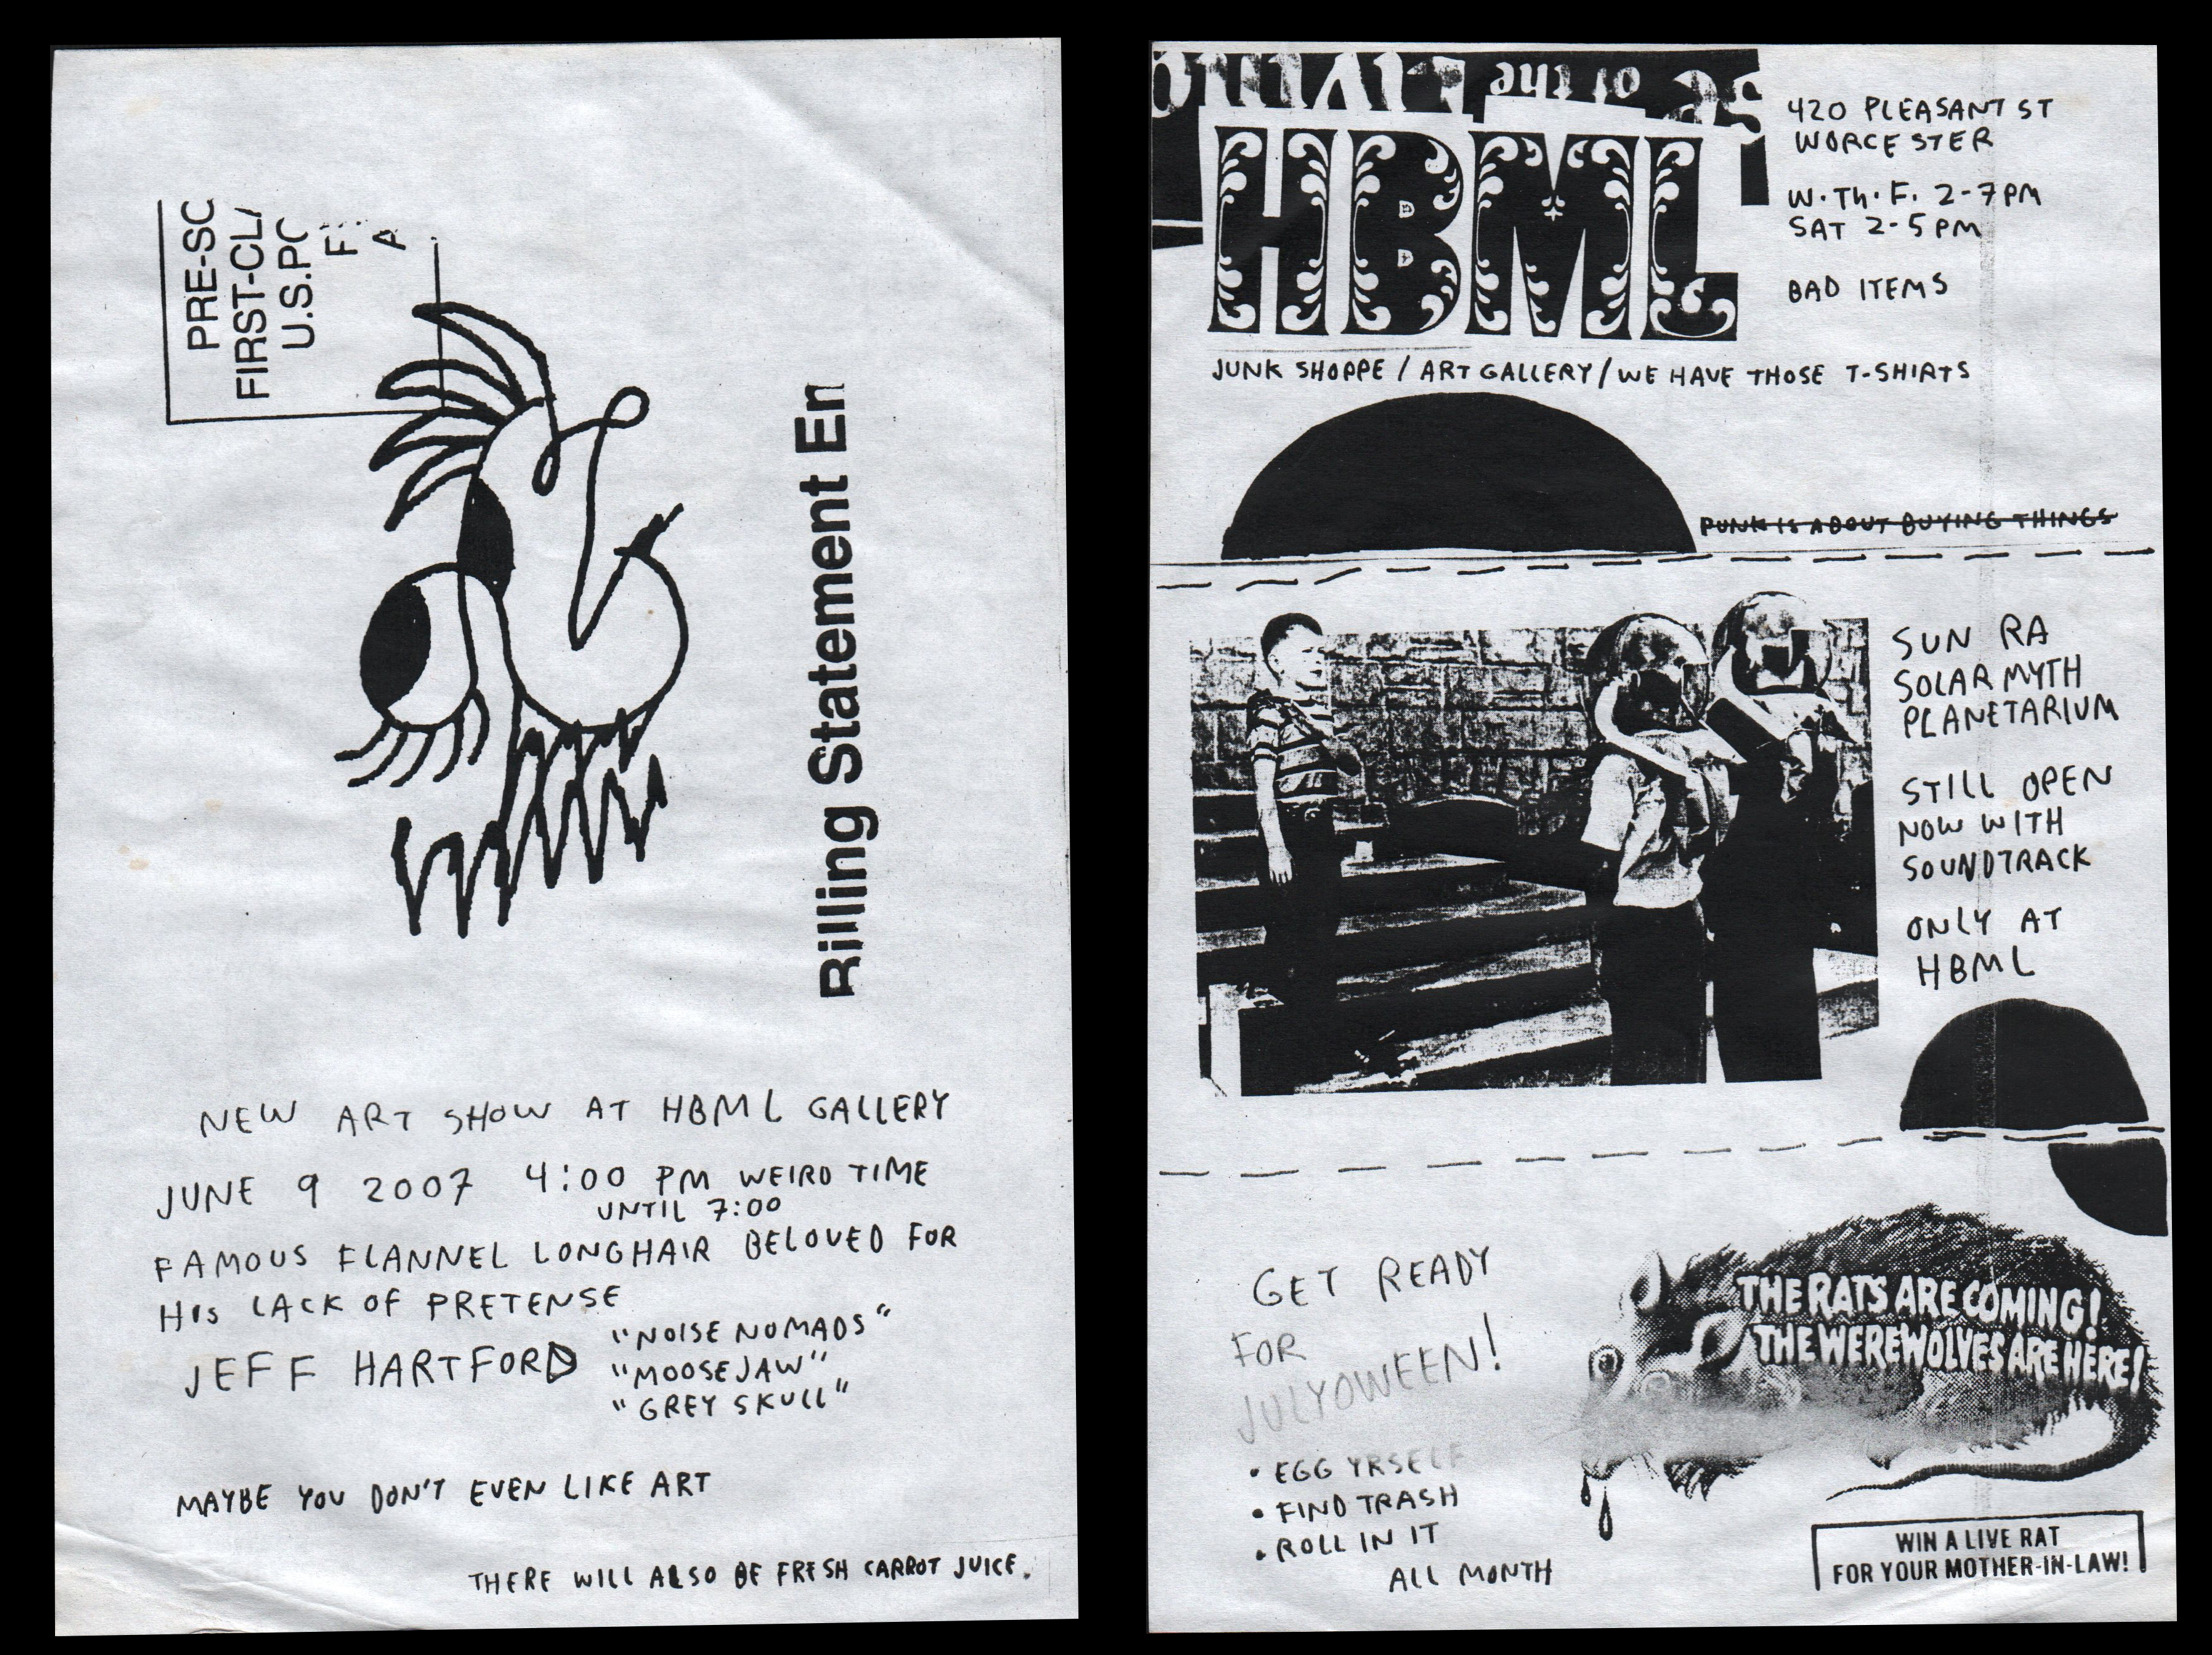 PRE-SC
FIRST-CLA
U.S.PO
F
A
Billing Statement En
NEW ART SHOW AT HBML GALLERY
JUNE 9 2007 4:00 PM WEIRD TIME
UNTIL 7:00
FAMOUS FLANNEL LONGHAIR BELOVED FOR
HIS LACK OF PRETENSE
JEFF HARTFORD
"NOISE NOMADS"
"MOOSEJAW"
"GREY SKULL"
MAYBE YOU DON'T EVEN LIKE ART
THERE WILL ALSO BE FRESH CARROT JUICE.
of the
HBML
420 PLEASANT ST
WORCESTER
W. Th. F. 2-7PM
SAT 2-5 PM
BAD ITEMS
JUNK SHOPPE / ART GALLERY / WE HAVE THOSE T-SHIRTS
PUNK IS ABOUT BUYING THINGS
SUN RA
SOLAR MYTH
PLANETARIUM
STILL OPEN
NOW WITH
SOUNDTRACK
ONLY AT
HBML
GET READY
FOR
JULYOWEEN!
• EGG YRSELF
• FIND TRASH
• ROLL IN IT
ALL MONTH
THE RATS ARE COMING!
THE WEREWOLVES ARE HERE!
WIN A LIVE RAT
FOR YOUR MOTHER-IN-LAW!